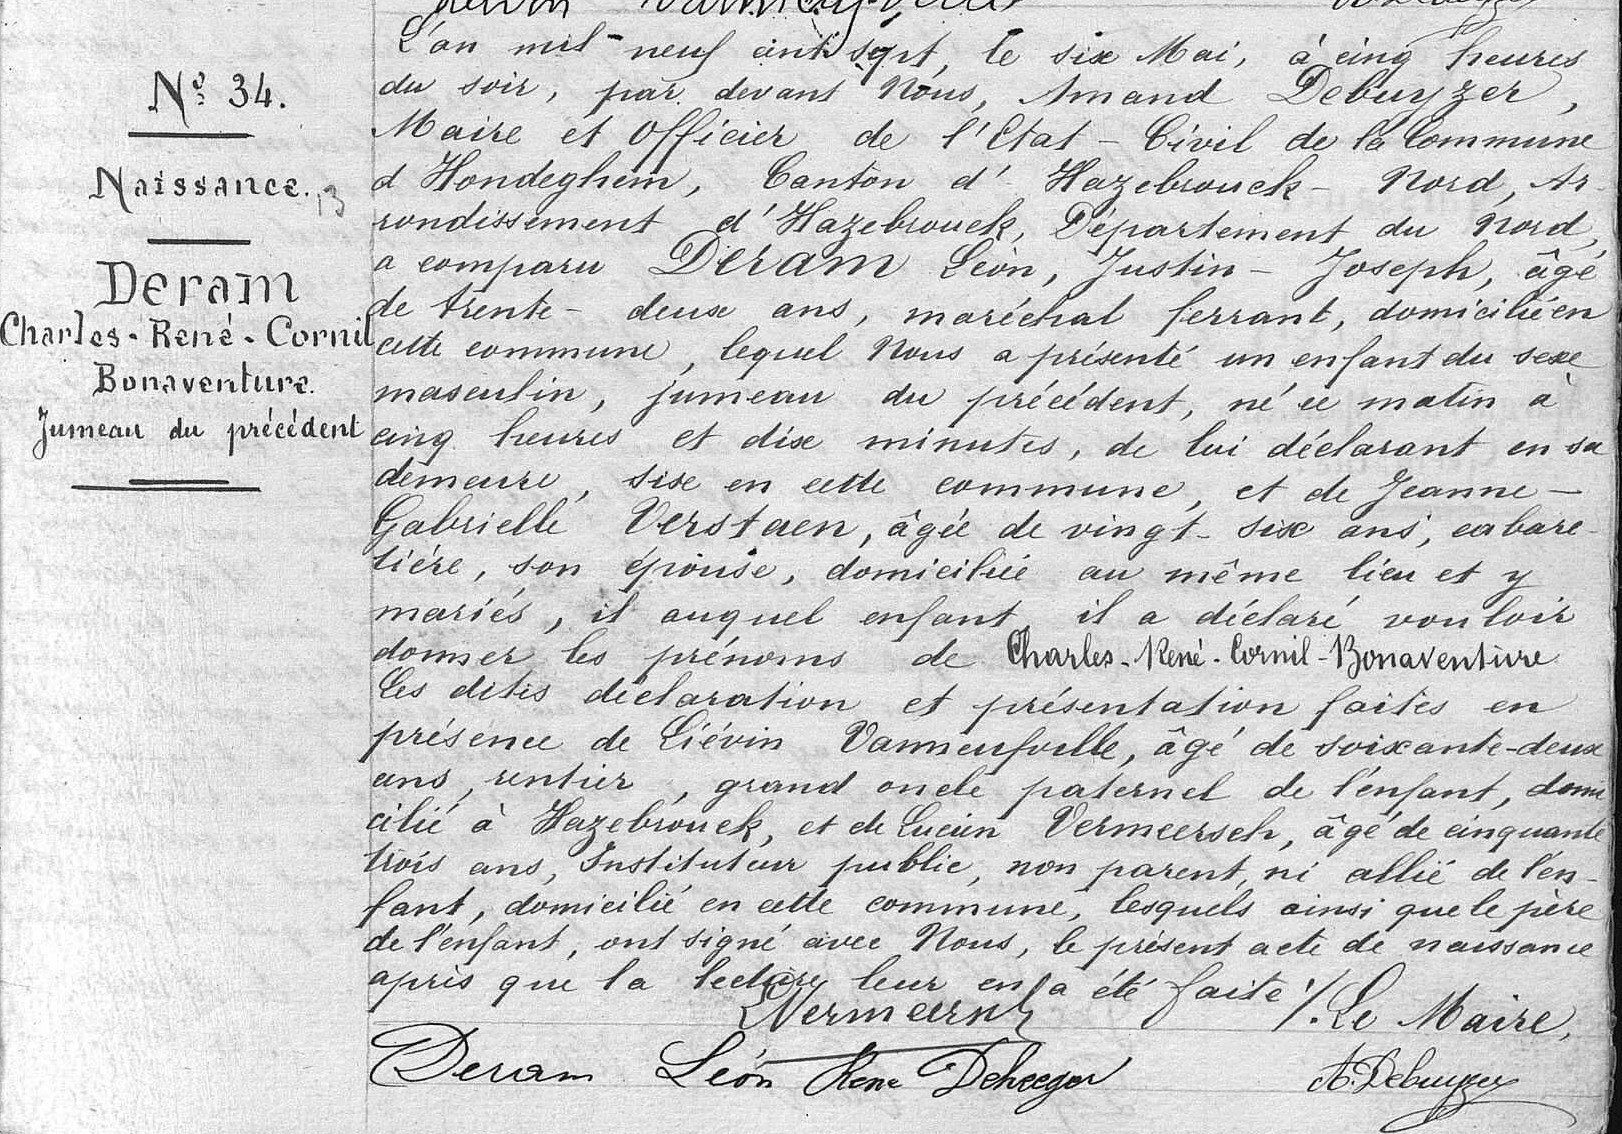 Nº 34.
Naissance.
13
Deram
Charles-René-Cornil
Bonaventure.
Jumeau du précédent
L'an mil-neuf cent sept, le six Mai, à cinq heures
du soir, par devant Nous, Amand Debuyzer,
Maire et Officier de l'Etat-Civil de la Commune
d'Hondeghem, Canton d'Hazebrouck-Nord, Ar-
rondissement d'Hazebrouck, Département du Nord,
a comparu Deram Léon, Justin-Joseph, âgé
de trente-deux ans, maréchal ferrant, domicilié en
cette commune, lequel Nous a présenté un enfant du sexe
masculin, jumeau du précédent, né ce matin à
cinq heures et dix minutes, de lui déclarant en sa
demeure, sise en cette commune, et de Jeanne-
Gabrielle Verstaen, âgée de vingt-six ans, cabare-
tière, son épouse, domiciliée au même lieu et y
mariés, il auquel enfant il a déclaré vouloir
donner les prénoms de Charles-René-Cornil-Bonaventure
Les dites déclaration et présentation faites en
présence de Liévin Vanneufville, âgé de soixante-deux
ans, rentier, grand oncle paternel de l'enfant, domi
cilié à Hazebrouck, et de Lucien Vermeersch, âgé de cinquante
trois ans, Instituteur public, non parent, ni allié de l'en-
fant, domicilié en cette commune, lesquels ainsi que le père
de l'enfant, ont signé avec Nous, le présent acte de naissance
après que la lecture leur en a été faite ./. Le Maire,
Vermeersch
Deram Léon René A. Debuyzer